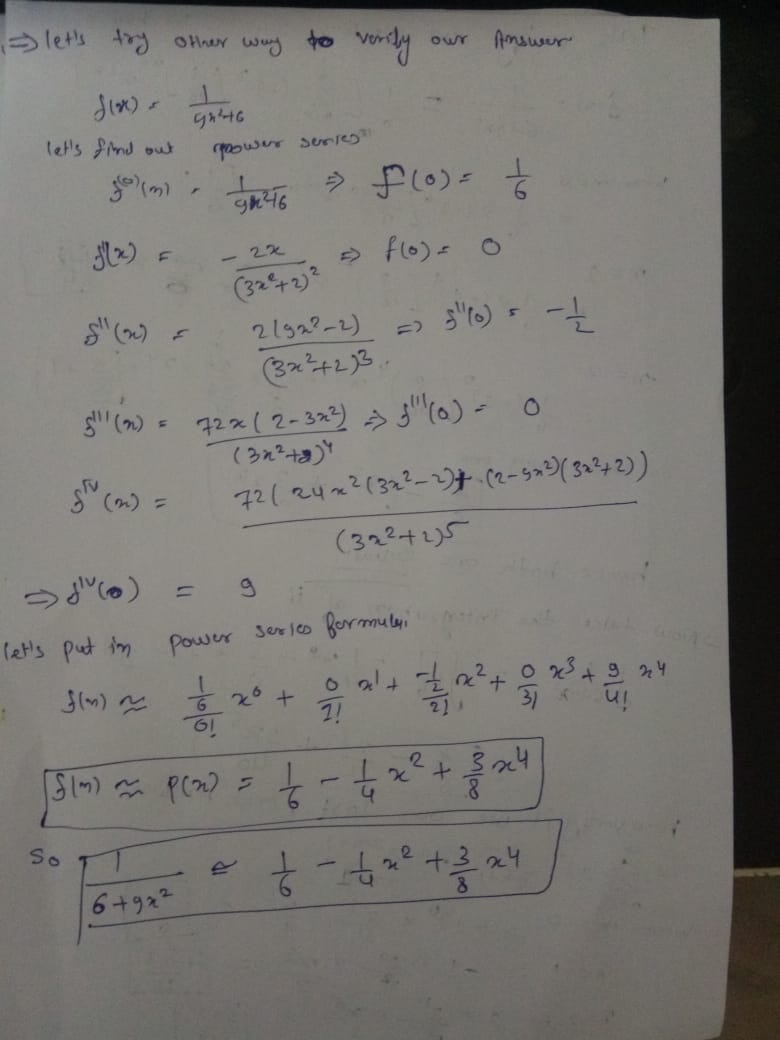 ⇒ let's try other way to verify our Answer
f(x) = 1/(9x²+6)
let's find out power series
f⁽⁰⁾(x) = 1/(9x²+6) ⇒ f(0) = 1/6
f'(x) = -2x/(3x²+2)² ⇒ f(0) = 0
f''(x) = 2(9x²-2)/(3x²+2)³ ⇒ f''(0) = -1/2
f'''(x) = 72x(2-3x²)/(3x²+2)⁴ ⇒ f'''(0) = 0
fᴵⱽ(x) = 72(24x²(3x²-2)+(2-9x²)(3x²+2))/(3x²+2)⁵
⇒ fᴵⱽ(0) = 9
let's put in power series formula
f(x) ≈ (1/6)/0! x⁰ + 0/1! x¹ + (-1/2)/2! x² + 0/3! x³ + 9/4! x⁴
f(x) ≈ p(x) = 1/6 - 1/4 x² + 3/8 x⁴
So 1/(6+9x²) ≅ 1/6 - 1/4 x² + 3/8 x⁴